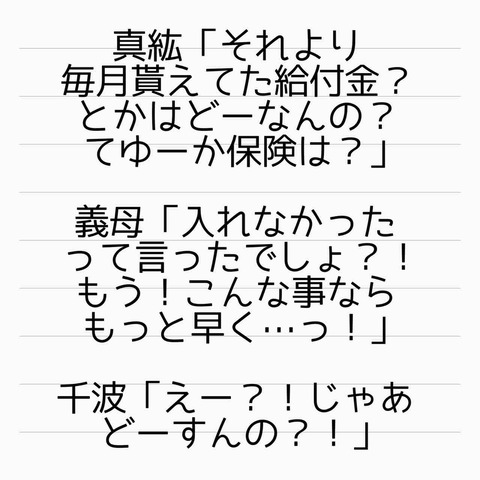 真紘「それより
毎月貰えてた給付金？
とかはどーなんの？
てゆーか保険は？」
義母「入れなかった
って言ったでしょ？！
もう！こんな事なら
もっと早く…っ！」
千波「えー？！じゃあ
どーすんの？！」